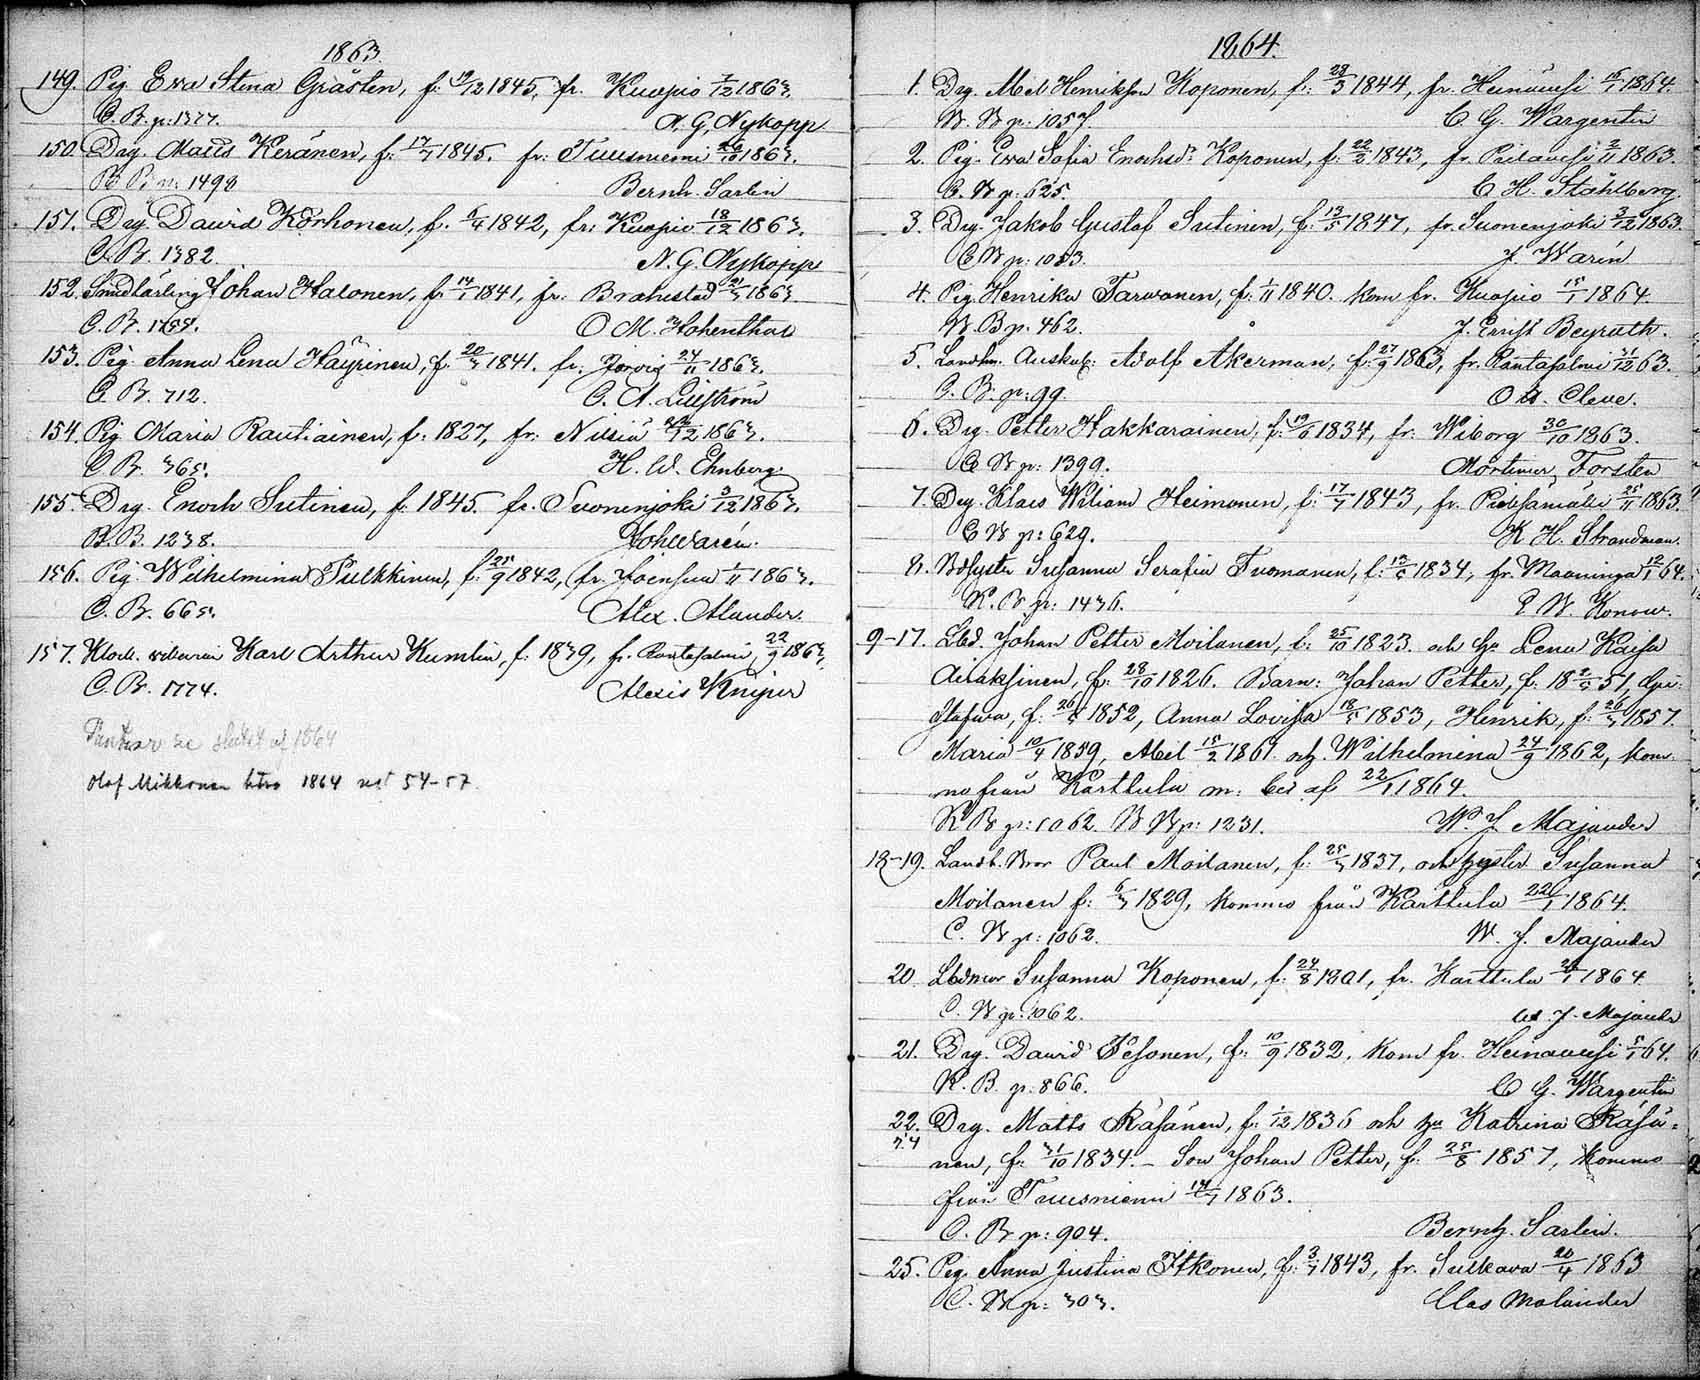 1863.
149. Pig. Eva Stina Gråsten, f: 19/12 1845, fr. Kuopio 7/12 1863,
C. B. p: 1377. N. G. Nykopp
150. Drg. Matts Keränen, f: 17/7 1845. fr: Tuusniemi 1863.
B. B. p: 1498 Bernh. Sarlin
151. Drg. David Korhonen, f. 1842, fr: Kuopio 18/12 1863.
C. B. 1382. N. G. Nykopp
152. Smedlärling Johan Halonen, f: 14/1 1841, fr: Brahestad 1863
C. B. O. M. Hohenthal
153. Pig. Anna Lena Häyrinen, f: 20/3 1841. fr. Jorois 24/11 1863.
C. B. 712. C. A. Liljeström
154. Pig. Maria Rautiainen, f: 1827, fr: Nilsiä 1863.
C. B. 365. H. W. Ehnberg
155. Drg. Enoch Sutinen, f. 1845. fr. Suonenjoki 3/12 1863.
B. B. 1238. Joh Warén.
156. Pig. Wilhelmina Pulkkinen, f: 25/9 1842, fr. Joensuu 1/11 1863.
C. B. 665. Alex. Alander.
157. Klock. vikarien Karl Arthur Kumlin, f: 1839, fr. Rantasalmi 22/9 1863,
C. B. 1774. Alexis Kniper
slutet af 1864
Olof Mikkonen 1864 54-57.
1864.
1. Drg. Abel Henriksson Koponen, f: 28/3 1844, fr. Heinävesi 16/1 1864.
B. B p: 1057 C. G. Wargentin
2. Pig. Eva Sofia Enochsdr Koponen, f: 22/2 1843, fr. Pielavesi 2/11 1863.
C. B p: 625. C H. Ståhlberg
3. Drg. Jakob Gustaf Sutinen, f: 13/5 1847, fr. Suonenjoki 3/12 1863.
C B p: 1053. J. Warén
4. Pig. Henrika Tarvonen, f: 1/11 1840. kom fr. Kuopio 15/1 1864.
B. B p. 462. J. Ernst Beyrath.
5. Landtm. Auskult: Adolf Åkerman, f: 27/9 1863, fr. Rantasalmi 31/12 63.
C. B. p: 99. O A. Cleve.
6. Drg. Petter Hakkarainen, f: 19/6 1834, fr: Wiborg 30/10 1863.
C B p: 1399. Mortimer Forstén
7. Drg. Klaes Wiliam Heimonen, f: 17/7 1843, fr. Pieksämäki 25/11 1863.
C B p: 629. K H. Strandman.
8. Susanna Serafia Tuomanen, f: 1834, fr. Maaninga 12/1 64.
K. B p: 1436. E W. Konow.
9-17. Lbd. Johan Petter Moilanen, f: 25/10 1823. och hu Lena Kaisa
Airaksinen, f: 28/10 1826. Barn: Johan Petter, f: 18 51,
Stafva, f: 26/5 1852, Anna Lovisa 18/5 1853, Henrik, f: 26/3 1857
Maria 10/4 1859, Abel 15/2 1861 och Wilhelmina 24/9 1862, kom
na från Karttula m: bet af 22/1 1864.
K B p: 1062. B B p: 1231. W. J Majander
18-19. Landb. Bror Paul Moilanen, f: 25/3 1837, och syster Susanna
Moilanen f: 6/3 1829, komma från Karttula 22/1 1864.
C. B p: 1062. W. J. Majander
20. Lbdmor Susanna Koponen, f: 24/8 1801, fr. Karttula 1864
C. B p: 1062. W. J. Majander
21. Drg. David Pesonen, f: 10/9 1832, kom fr. Heinävesi 5/1 64.
K. B. p. 866. C G. Wargentin
22. Drg. Matts Räsänen, f: 1/12 1836 och hu Katrina Räsä-
24 nen, f: 31/10 1834. – Son Johan Petter, f: 25/8 1857, komna
från Tuusniemi 1863.
C. B p: 904. Bernh. Sarlin.
25. Pig. Anna Justina Itkonen, f: 3/7 1843, fr. Sulkava 20/4 1863
C. B p: 303. Clas Molander